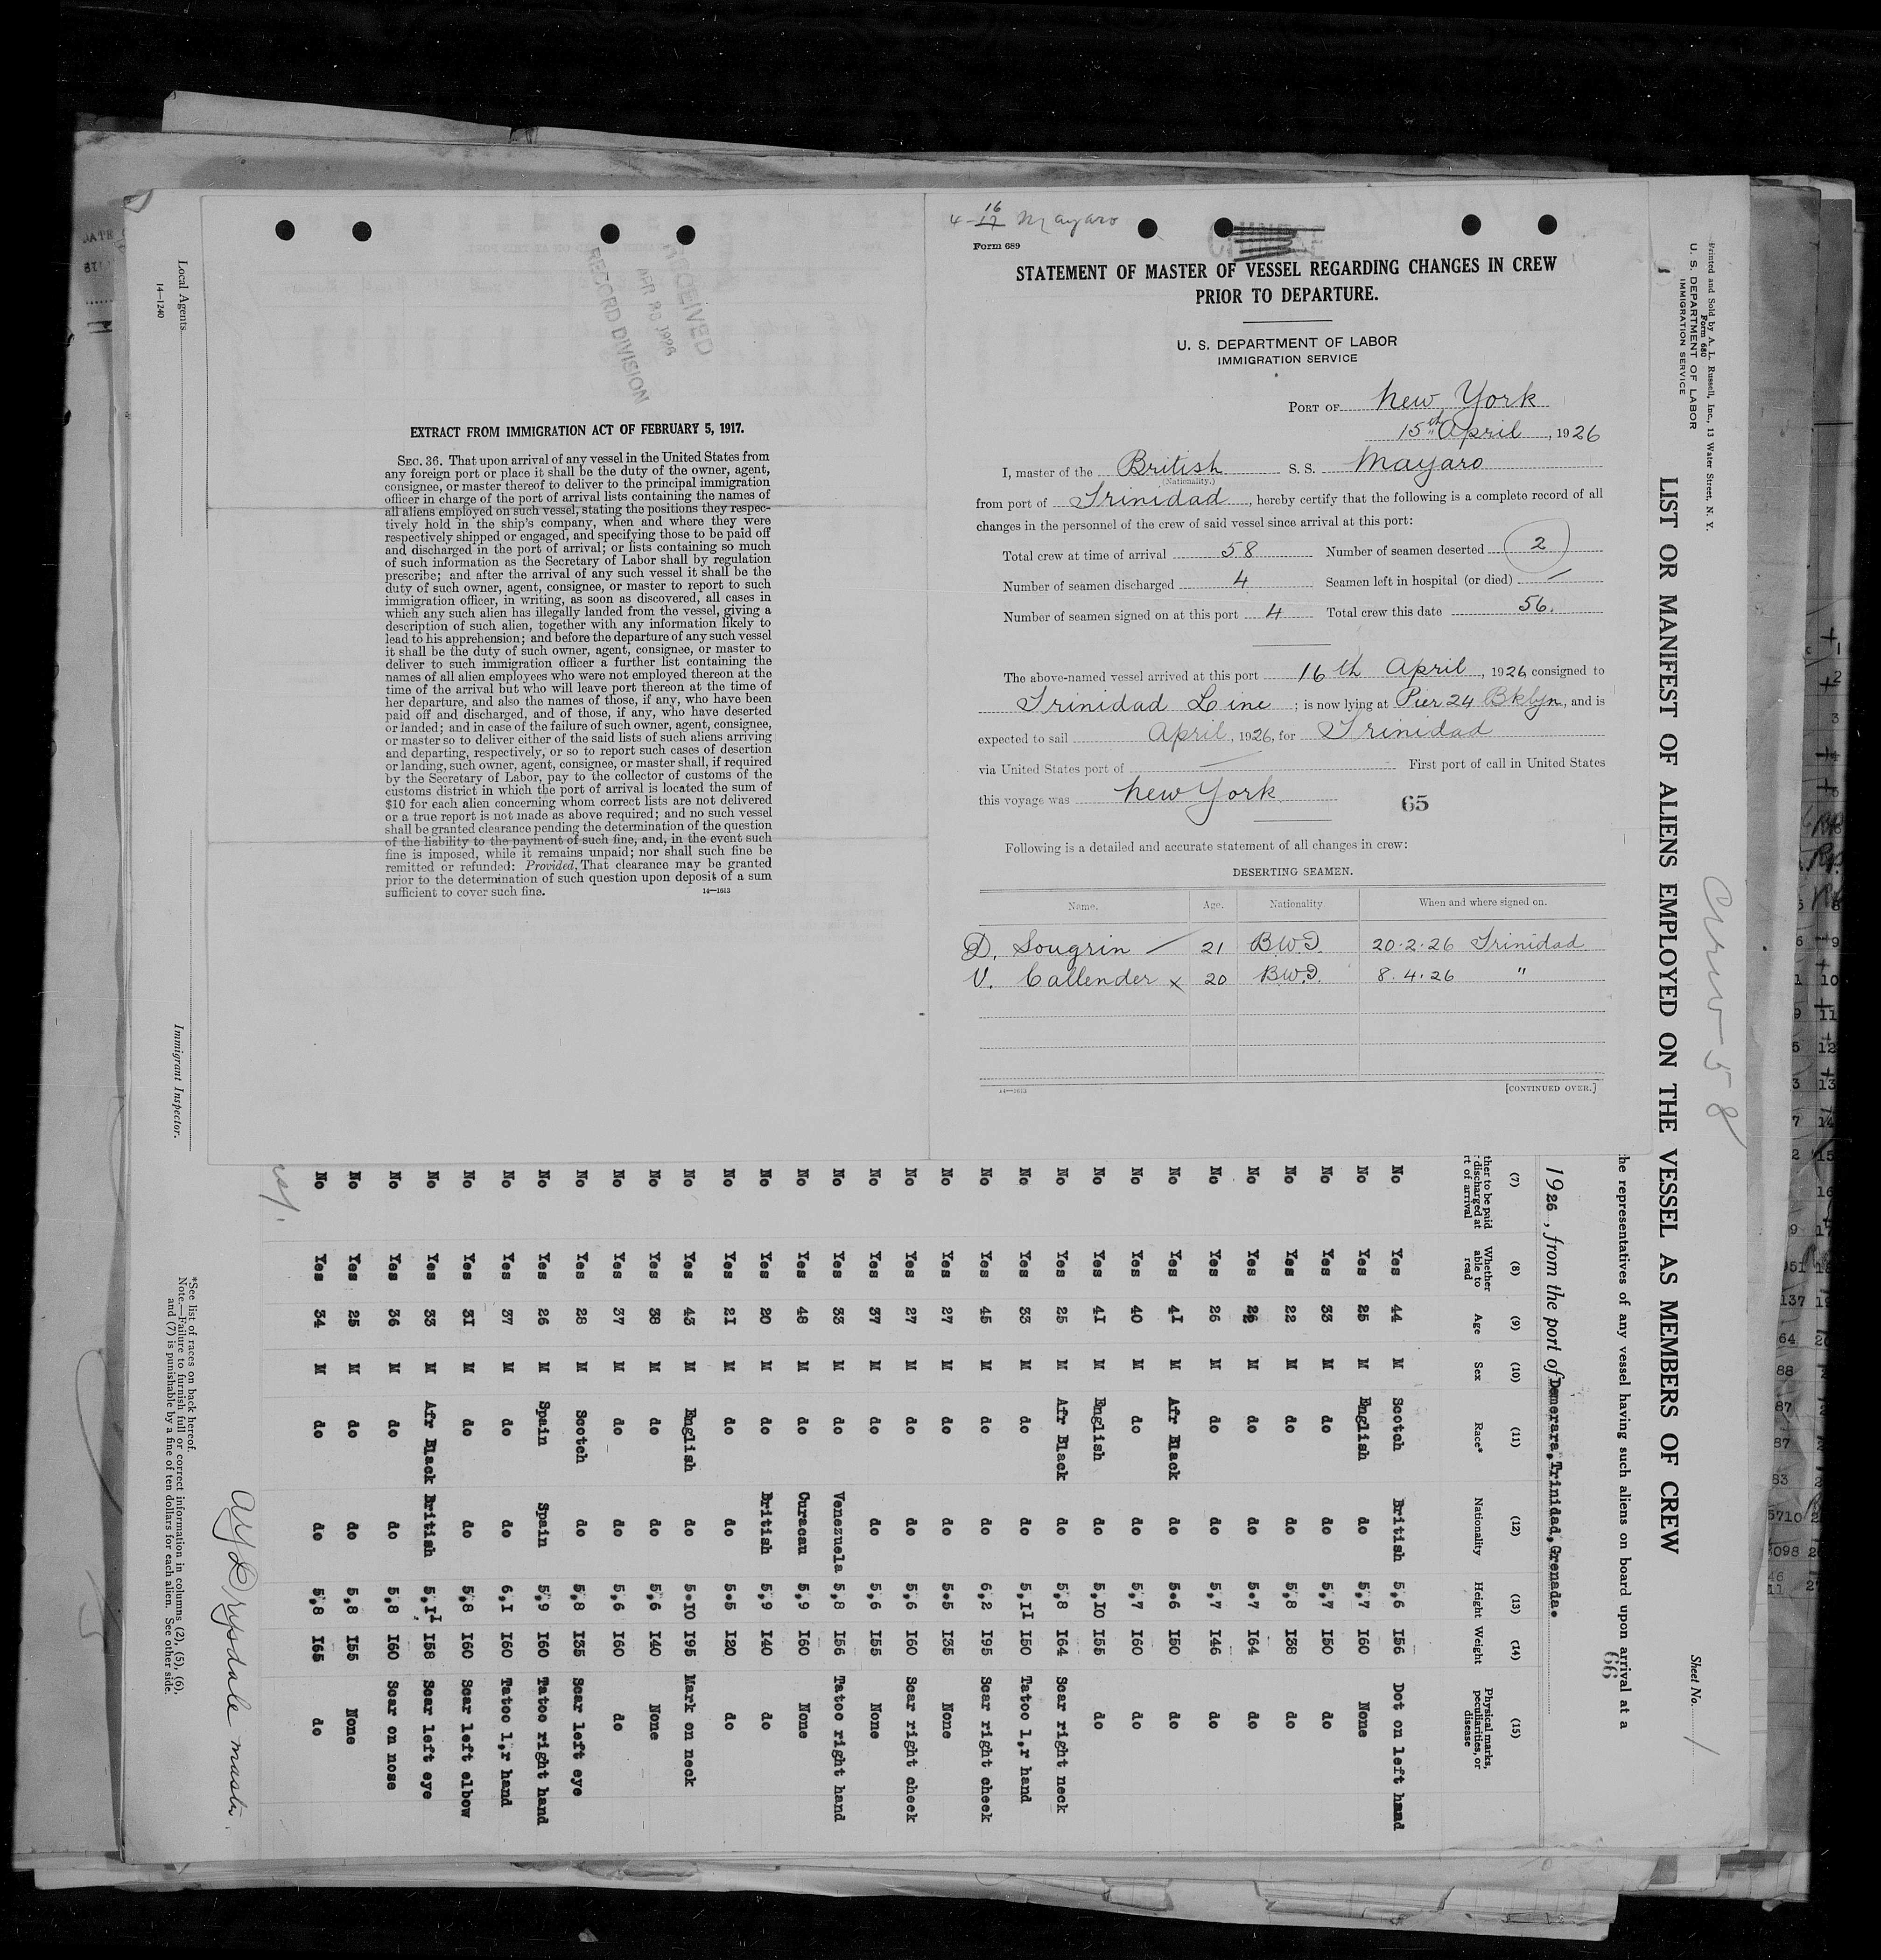 4-16
17 Mayaro
Form 689
STATEMENT OF MASTER OF VESSEL REGARDING CHANGES IN CREW
PRIOR TO DEPARTURE.
U. S. DEPARTMENT OF LABOR
IMMIGRATION SERVICE
PORT OF New York
15th April, 1926
I, master of the British S. S. Mayaro
(Nationality.)
from port of Trinidad, hereby certify that the following is a complete record of all
changes in the personnel of the crew of said vessel since arrival at this port:
Total crew at time of arrival 58 Number of seamen deserted 2
Number of seamen discharged 4 Seamen left in hospital (or died) —
Number of seamen signed on at this port 4 Total crew this date 56.
The above-named vessel arrived at this port 16th April, 1926 consigned to
Trinidad Line; is now lying at Pier 24 Bklyn, and is
expected to sail April, 1926, for Trinidad
via United States port of — First port of call in United States
this voyage was New York
65
Following is a detailed and accurate statement of all changes in crew:
DESERTING SEAMEN.
Name. Age. Nationality. When and where signed on.
D. Sougrin 21 B.W.I. 20.2.26 Trinidad
V. Callender x 20 B.W.I. 8.4.26 "
14—1613 [CONTINUED OVER.]
RECEIVED
APR 1926
RECORD DIVISION
EXTRACT FROM IMMIGRATION ACT OF FEBRUARY 5, 1917.
SEC. 36. That upon arrival of any vessel in the United States from
any foreign port or place it shall be the duty of the owner, agent,
consignee, or master thereof to deliver to the principal immigration
officer in charge of the port of arrival lists containing the names of
all aliens employed on such vessel, stating the positions they respec-
tively hold in the ship's company, when and where they were
respectively shipped or engaged, and specifying those to be paid off
and discharged in the port of arrival; or lists containing so much
of such information as the Secretary of Labor shall by regulation
prescribe; and after the arrival of any such vessel it shall be the
duty of such owner, agent, consignee, or master to report to such
immigration officer, in writing, as soon as discovered, all cases in
which any such alien has illegally landed from the vessel, giving a
description of such alien, together with any information likely to
lead to his apprehension; and before the departure of any such vessel
it shall be the duty of such owner, agent, consignee, or master to
deliver to such immigration officer a further list containing the
names of all alien employees who were not employed thereon at the
time of the arrival but who will leave port thereon at the time of
her departure, and also the names of those, if any, who have been
paid off and discharged, and of those, if any, who have deserted
or landed; and in case of the failure of such owner, agent, consignee,
or master so to deliver either of the said lists of such aliens arriving
and departing, respectively, or so to report such cases of desertion
or landing, such owner, agent, consignee, or master shall, if required
by the Secretary of Labor, pay to the collector of customs of the
customs district in which the port of arrival is located the sum of
$10 for each alien concerning whom correct lists are not delivered
or a true report is not made as above required; and no such vessel
shall be granted clearance pending the determination of the question
of the liability to the payment of such fine, and, in the event such
fine is imposed, while it remains unpaid; nor shall such fine be
remitted or refunded: Provided, That clearance may be granted
prior to the determination of such question upon deposit of a sum
sufficient to cover such fine.
14—1613
Printed and Sold by A. L. Russell, Inc., 13 Water Street, N. Y.
Form 680
U. S. DEPARTMENT OF LABOR
IMMIGRATION SERVICE
Crew 58
Sheet No. 1
LIST OR MANIFEST OF ALIENS EMPLOYED ON THE VESSEL AS MEMBERS OF CREW
he representatives of any vessel having such aliens on board upon arrival at a
66
1926, from the port of Demerara, Trinidad, Grenada.
(7) (8) (9) (10) (11) (12) (13) (14) (15)
ther to be paid discharged at rt of arrival Whether able to read Age Sex Race* Nationality Height Weight Physical marks, peculiarities, or disease
No Yes 44 M Scotch British 5,6 156 Dot on left hand
No Yes 25 M English do 5,7 160 None
No Yes 33 M do do 5,7 150 do
No Yes 22 M do do 5,8 138 do
No Yes M do do 5.7 164 do
No Yes 26 M do do 5,7 146 do
No Yes 41 M Afr Black do 5.6 150 do
No Yes 40 M do do 5,7 160 do
No Yes 41 M English do 5,10 155 do
No Yes 25 M Afr Black do 5,8 164 Scar right neck
No Yes 33 M do do 5,11 150 Tatoo l,r hand
No Yes 45 M do do 6,2 195 Scar right cheek
No Yes 27 M do do 5.5 135 None
No Yes 27 M do do 5,6 160 Scar right cheek
No Yes 37 M do do 5,6 155 None
No Yes 33 M do Venezuela 5,8 156 Tatoo right hand
No Yes 48 M do Curacau 5,9 160 None
No Yes 20 M do British 5,9 140 do
No Yes 21 M do do 5.5 120 do
No Yes 43 M English do 5.10 195 Mark on neck
No Yes 38 M do do 5,6 140 None
No Yes 37 M do do 5,6 160 do
No Yes 28 M Scotch do 5,8 135 Scar left eye
No Yes 26 M Spain Spain 5,9 160 Tatoo right hand
No Yes 37 M do do 6,1 160 Tatoo l,r hand
No Yes 31 M do do 5,8 160 Scar left elbow
No Yes 33 M Afr Black British 5,11 158 Scar left eye
No Yes 36 M do do 5,8 160 Scar on nose
No Yes 25 M do do 5,8 155 None
No Yes 34 M do do 5,8 165 do
Drysdale master.
*See list of races on back hereof.
Note.—Failure to furnish full or correct information in columns (2), (5), (6),
and (7) is punishable by a fine of ten dollars for each alien. See other side.
Local Agents
Immigrant Inspector.
14—1240